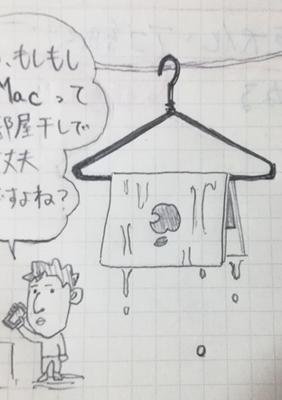 、もしもし
Macって
部屋干しで
丈夫
ですよね?